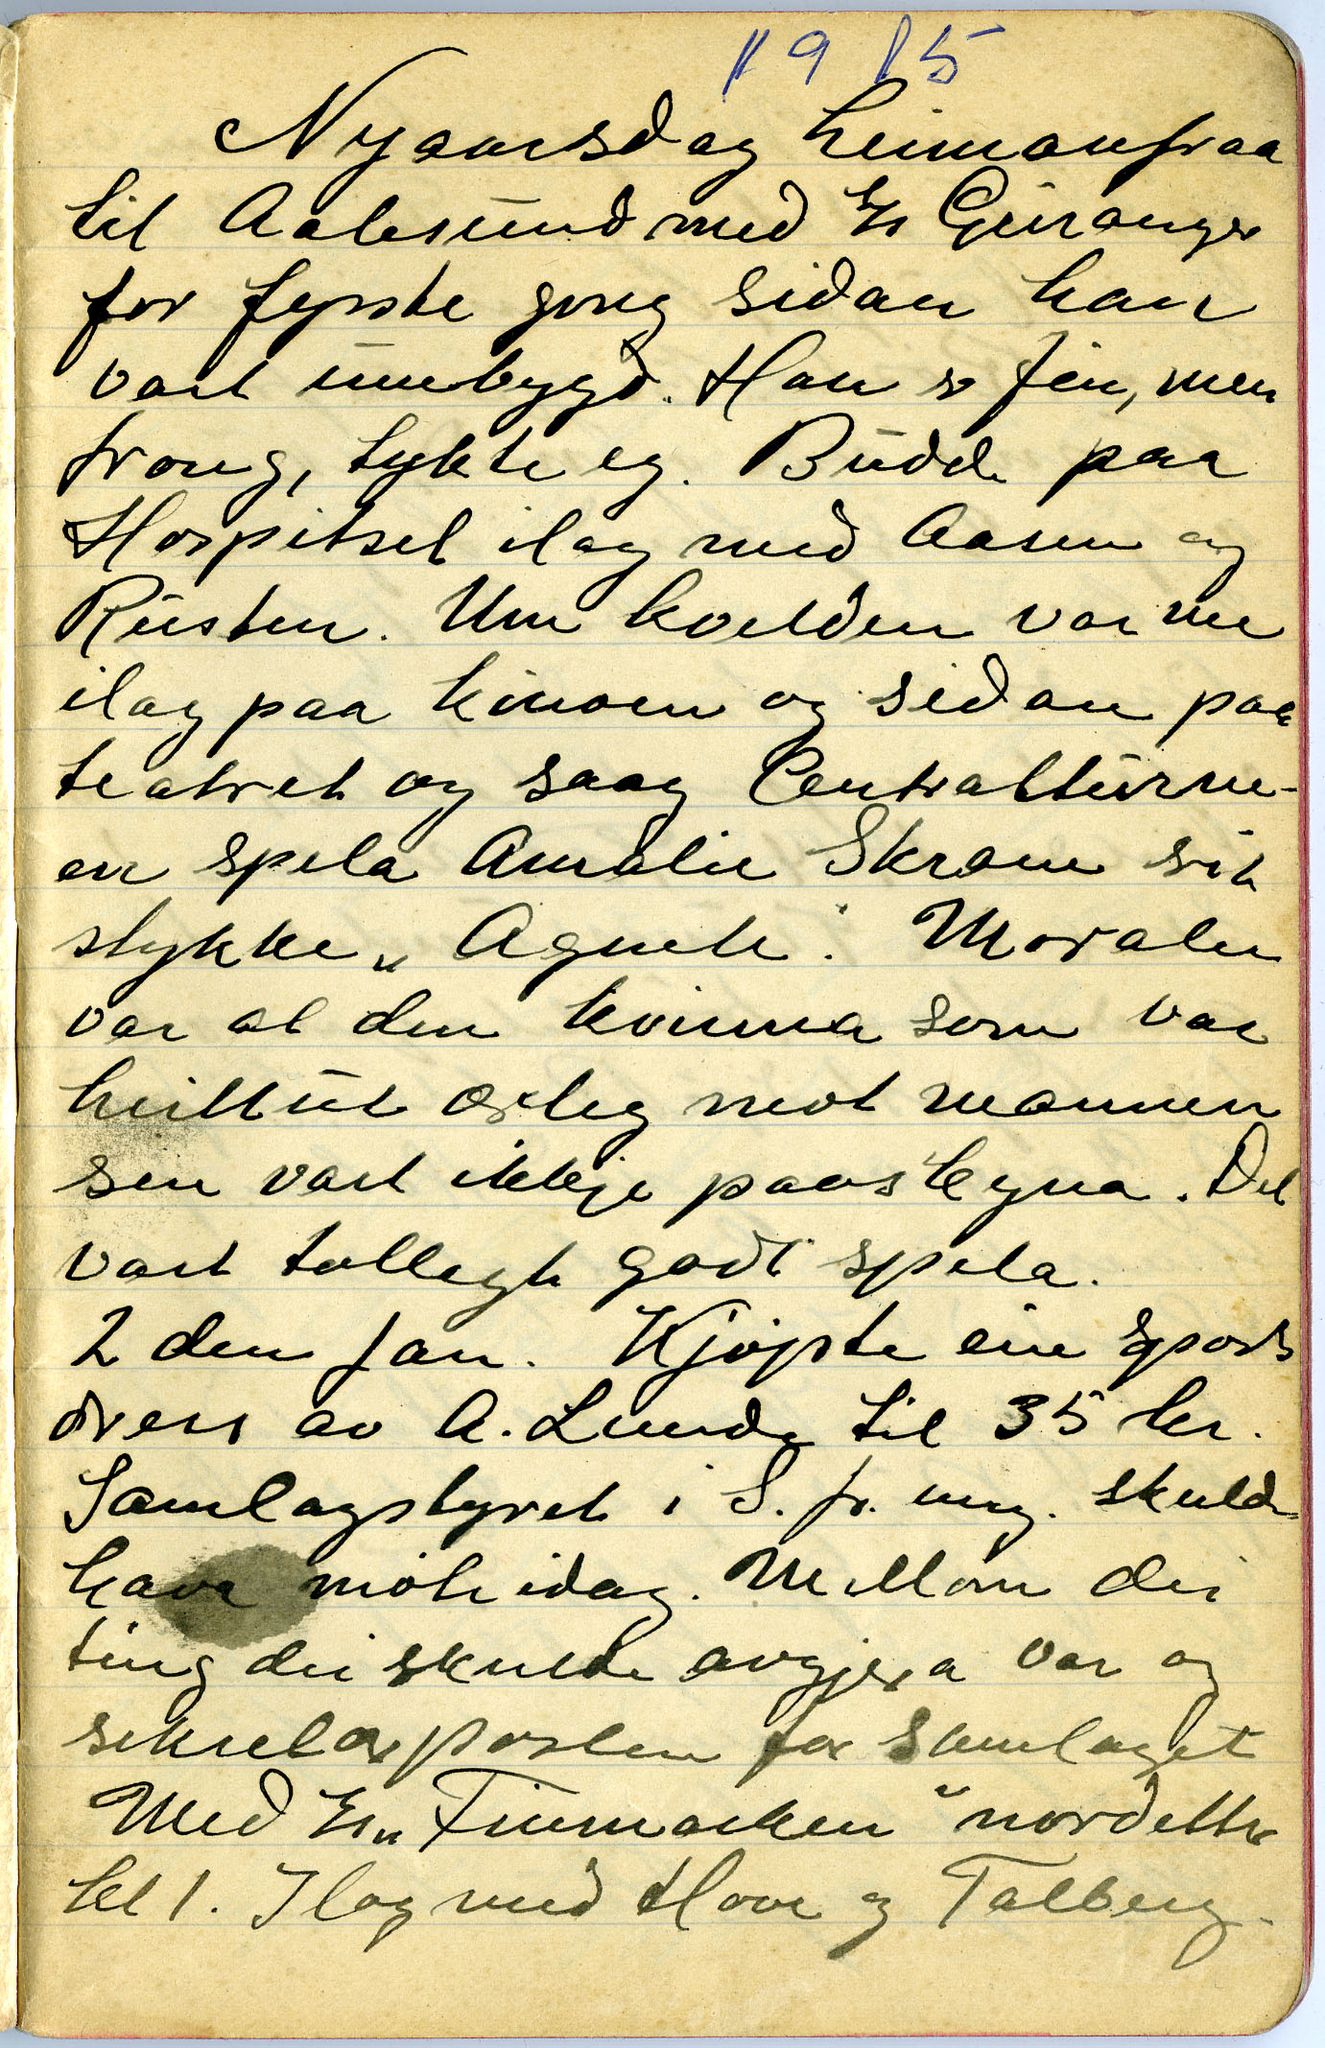 1915
Nyaarsdag heimanfraa
til Aalesund med Es Geiranger
for fyrste gong sidan han
vart umbygd. Han er fin, men
trong, tykte eg. Budde paa
Hospitset ilag med Aasen og
Rusten. Um kvelden var me
ilag paa kinoen og sidan paa
teatret og saag Centralturne-
en spela Amalie Skram sit
stykke „Agnete". Moralen
var at den kvinna som var
heiltut ærleg mot mannen
sin vart ikkje paaskyna. Det
vart tollegt godt spela.
2 den jan. Kjøpte ein sports
dress av A. Lunde til 35 kr.
Samlagstyret i S. fr. ung. skulde
hava møte idag. Millom dei
ting dei skulde avgjera var og
sekretærposten for samlaget
Med Es „Finmarken" nordetter
kl 1. Ilag med Hove og Talberg.